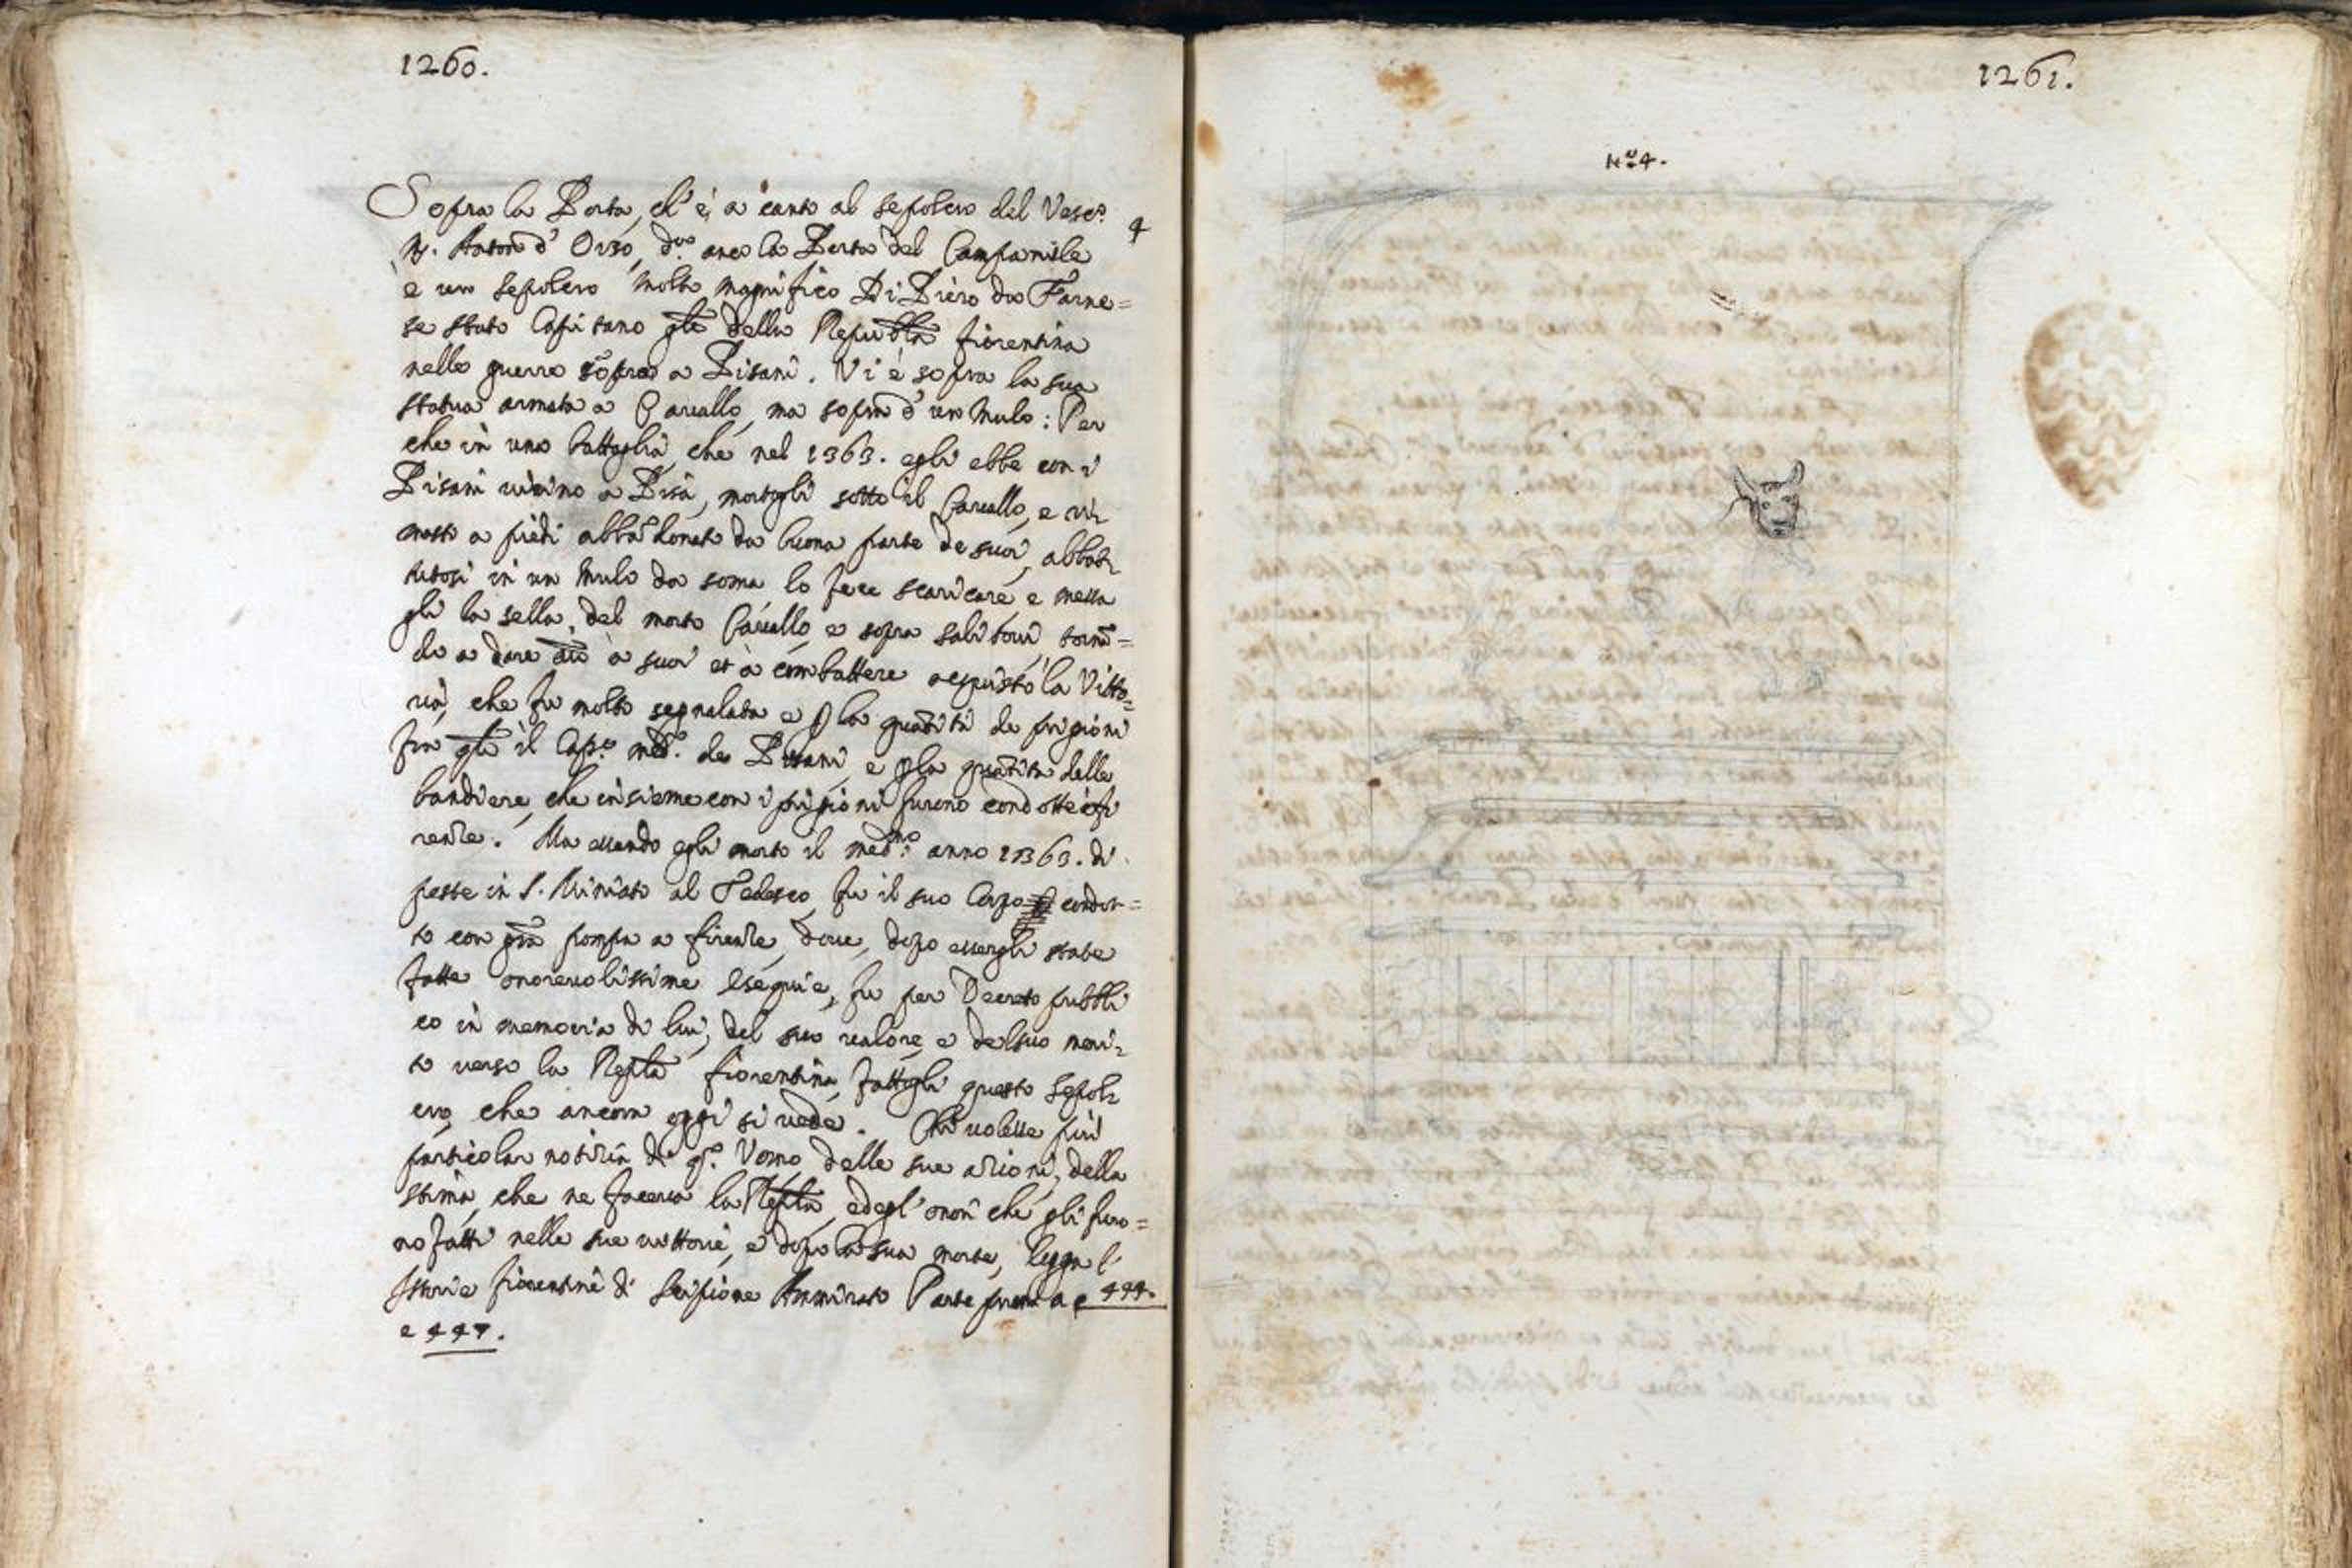 1260.
Sopra la Porta, ch'è, a canto al sepolcro del Vesc.o
4
M. Anton d' Orso, d.o anco la Porta del Campanile
è un sepolcro molto magnifico Di Piero da Farne=
se stato Capitano gñle della Repubbla fiorentina
nelle guerre a Pisani. Vi è sopra la sua
statua armata a Cavallo, ma sopra d' un Mulo: Per
che in una battaglia, che nel 1363. egli ebbe con i
Pisani vicino a Pisa, mortogli sotto il Cavallo, e ri-
masto a piedi abbādonato da buona parte de suoi, abbat-
tutosi in un Mulo da soma lo fece scaricare e messa
gli la sella, del morto Cavallo, e sopra salitovi, tornā=
do a dare a suoi et a combattere acquistò la Vitto=
ria, che fu molto segnalata e p la quātità de prigioni
fra gli il Cap.o med.o de Pisani, e p la quātità delle
bandiere, che insieme con i prigioni furono condotte ī fi
renze. Ma essendo egli morto il med.mo anno 1363. di
peste in S. Miniato al Tedesco, fu il suo Corpo condot=
to con grā pompa a firenze, dove, dopo essergli state
fatte onorevolissime Esequie, fu per Decreto pubbli
co in memoria di lui, del suo valore, e del suo meri-
to verso la Repba fiorentina, fattogli questo Sepol-
cro, che ancora oggi si vede. Chi volesse più
particolar notizia di qsto. Vomo, delle sue azioni, della
stima, che ne faceva la Repba, e degl' onori che gli furo=
no fatti nelle sue vittorie, e dopo la sua morte, legga l'
Istorie fiorentine di Scipione Ammirato Parte prima a c 444.
e 447.
1261.
N.o 4.